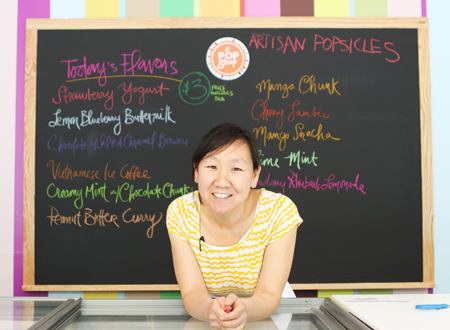 Today's Flavors
Strawberry Yogurt
Lemon Blueberry Buttermilk
Chocolate w/ Salted Caramel Brownie
Vietnamese Ice Coffee
Creamy Mint w/ Chocolate Chunk
Peanut Butter Curry
$3
PRICE INCLUDES TAX
POP
ARTISAN POPSICLES
Mango Chunk
Cherry Lambic
Mango Sriracha
Mint
Rhubarb Lemonade